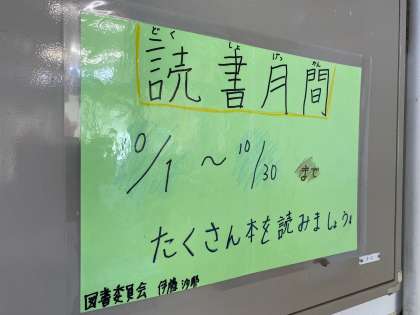 どく しょ げっ かん
読書月間
10/1～10/30まで
たくさん本を読みましょう。
図書委員会 伊藤 沙耶